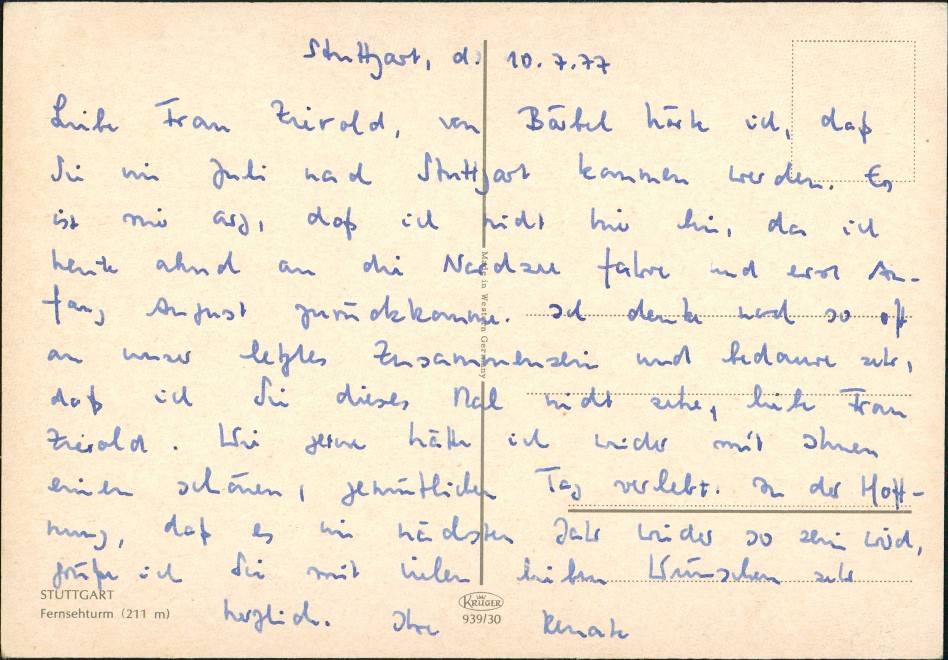 Stuttgart, d. 10.7.77
Liebe Frau Zierold, von Bärbel hörte ich, daß
Sie im Juli nach Stuttgart kommen werden. Es
ist mir arg, daß ich nicht hier bin, da ich
heute abend an die Nordsee fahre und erst An-
fang August zurückkomme. Ich denke noch so oft
an unser letztes Zusammensein und bedaure sehr,
daß ich Sie dieses Mal nicht sehe, liebe Frau
Zierold. Wie gerne hätte ich wieder mit Ihnen
einen schönen, gemütlichen Tag verlebt. In der Hoff-
nung, daß es im nächsten Jahr wieder so sein wird,
grüße ich Sie mit vielen lieben Wünschen sehr
herzlich. Ihre Renate
Made in Western Germany
STUTTGART
Fernsehturm (211 m)
KRÜGER
939/30